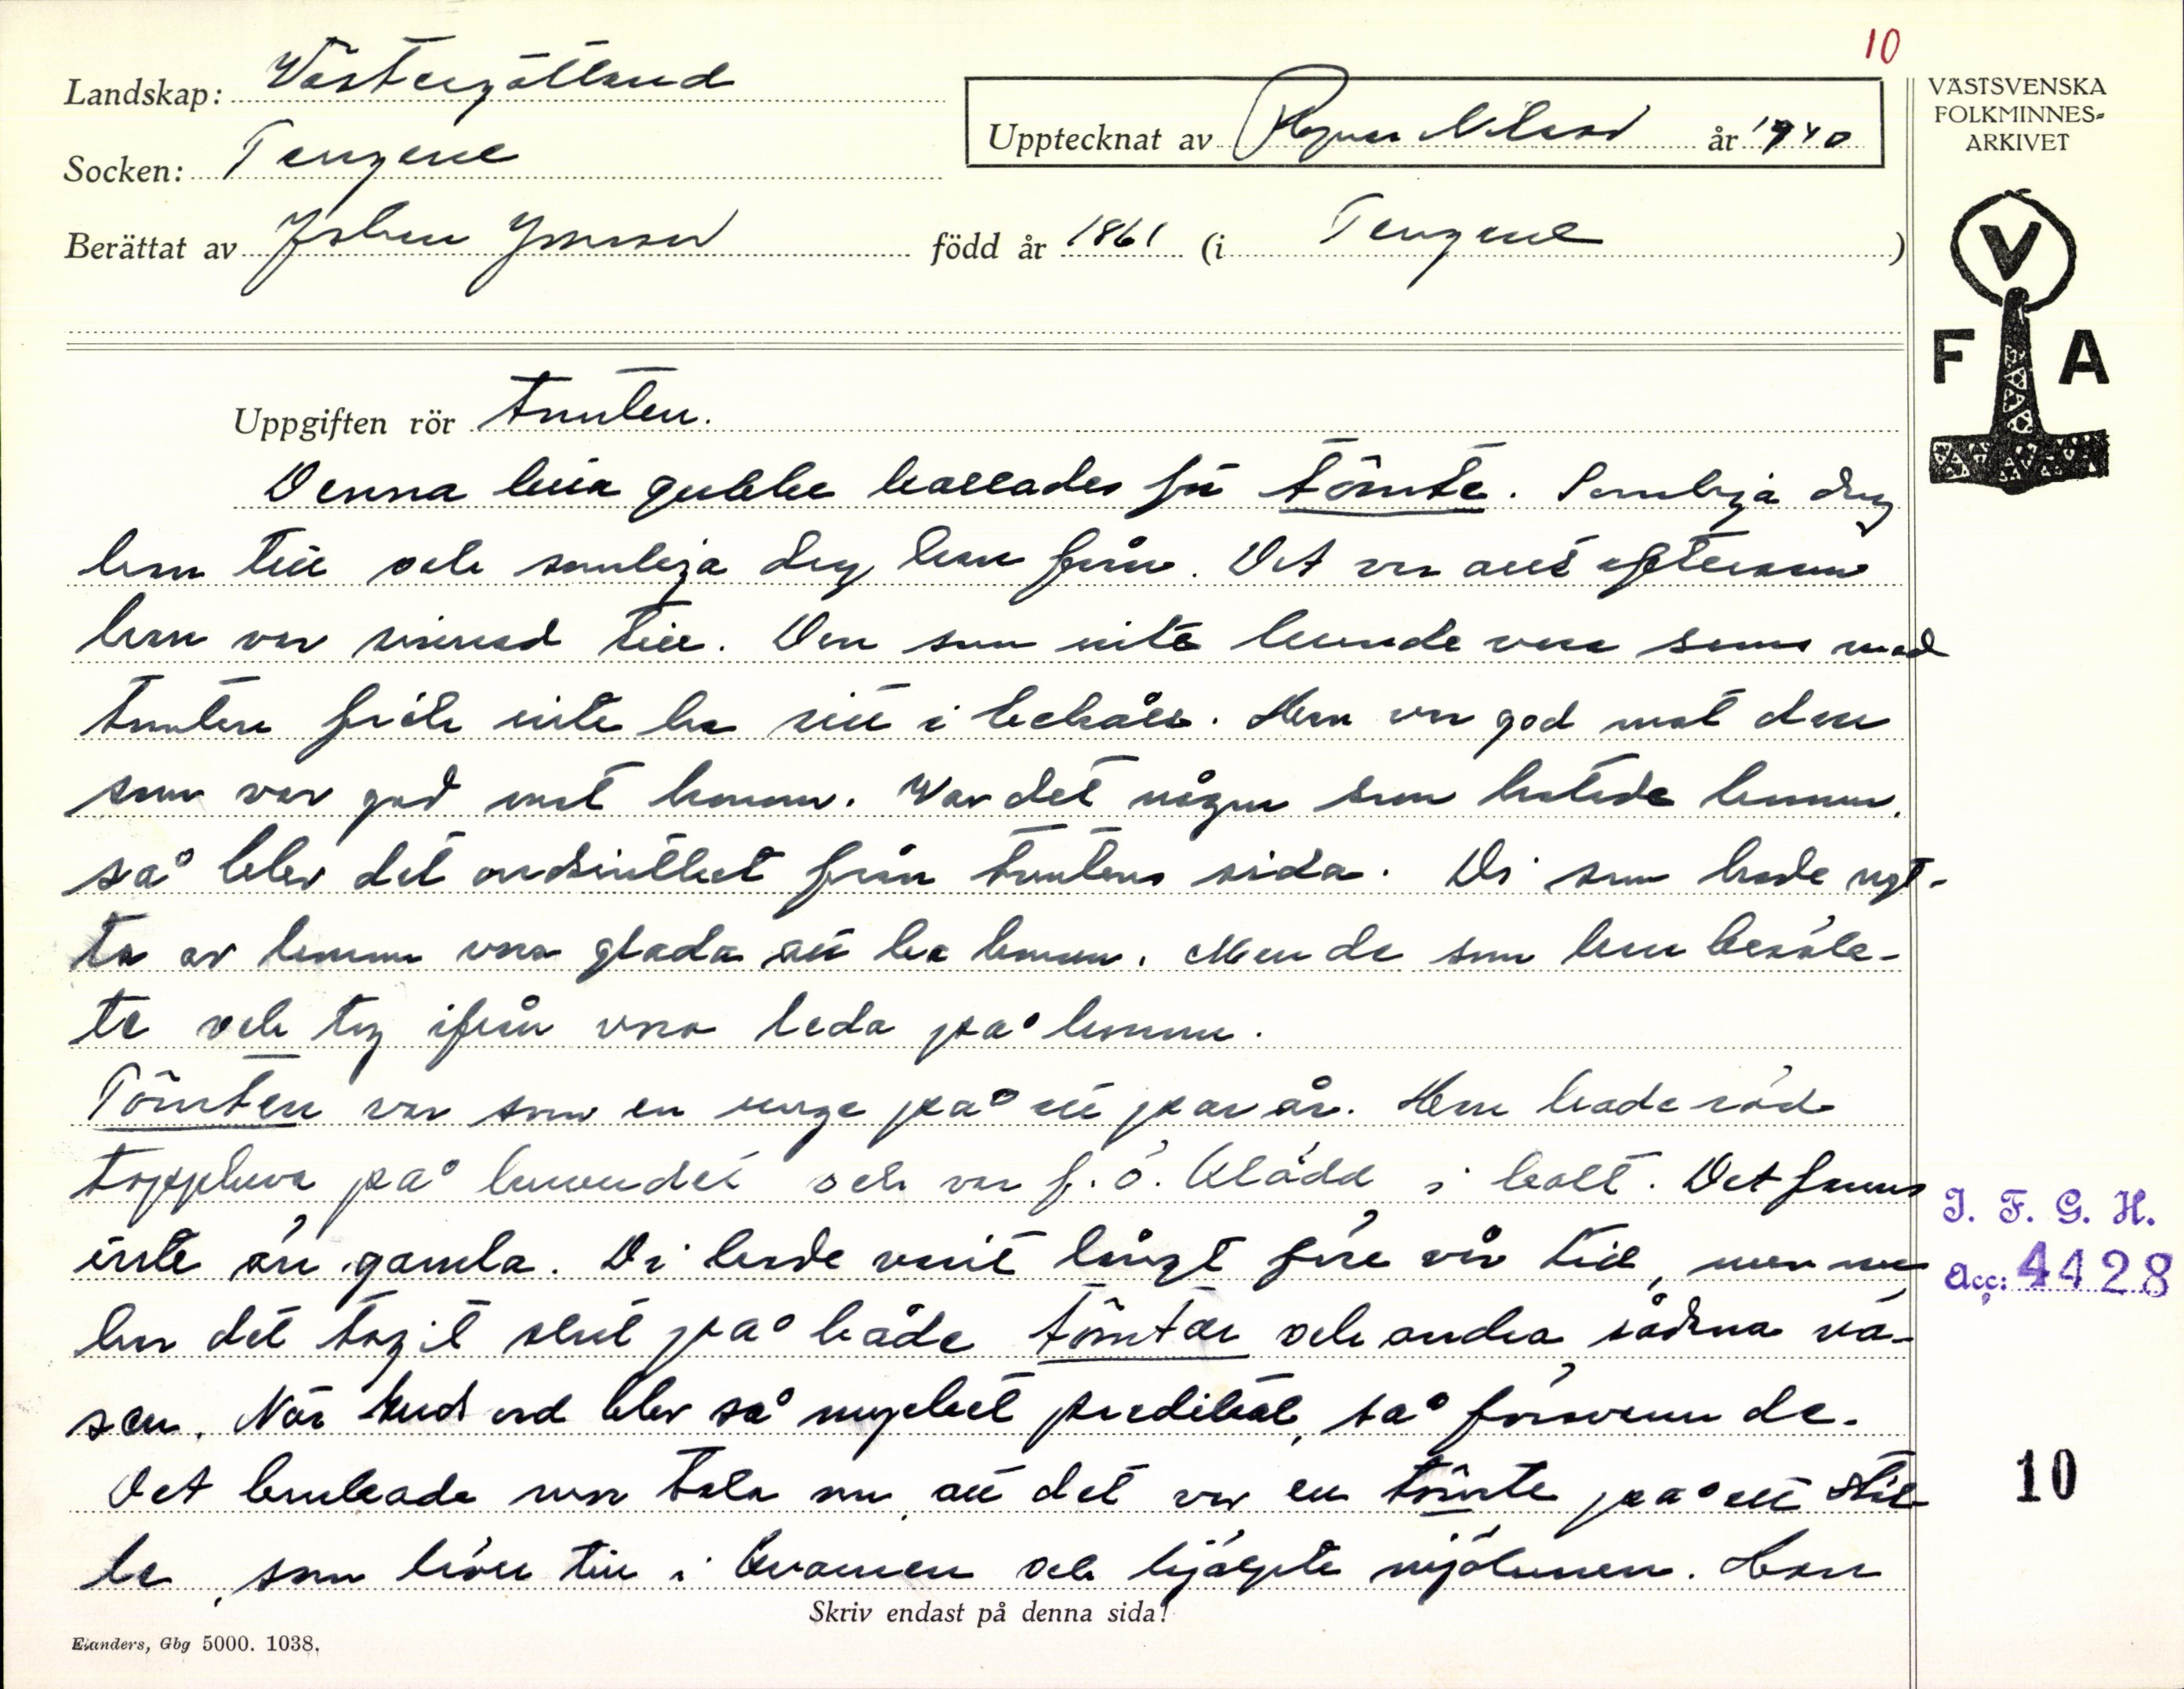 10
Landskap: Västergötland
Socken: Tengene
Upptecknat av Ragnar Nilsson år 1940
Berättat av Johan Jonsson född år 1861 (i Tengene)
VÄSTSVENSKA
FOLKMINNES-
ARKIVET
V
F A
Uppgiften rör tomten.
Denna lilla gubbe kallades för tômte. Somliga drog
han till och somliga drog han från. Det var allt eftersom
han var vännad till. Den som inte kunde vara sams med
tomten fick inte ha sitt i behåll. Han var god mot den
som var god mot honom. Var det någon som hatade honom,
så blev det ondsinthet från tomtens sida. Di som hade nyt-
ta av honom vara glada att ha honom. Men de som han besök-
te och tog ifrån vara leda på honom.
Tômten var som en unge på ett par år. Han hade röd
toppluva på huvudet och var f. ö. klädd i kolt. Det fanns
inte än gamla. Di hade varit långt före vår tid, men nu
har det tagit slut på både tômtar och andra sådana vä-
sen. När Guds ord blev så mycket predikat, så försvann de.
Det brukade man tala om, att det var en tômte på ett stäl-
le, som höll till i kvarnen och hjälpte mjölnaren. Han
Skriv endast på denna sida!
Elanders, Gbg 5000. 1038.
I. F. G. H.
Acc: 4428
10